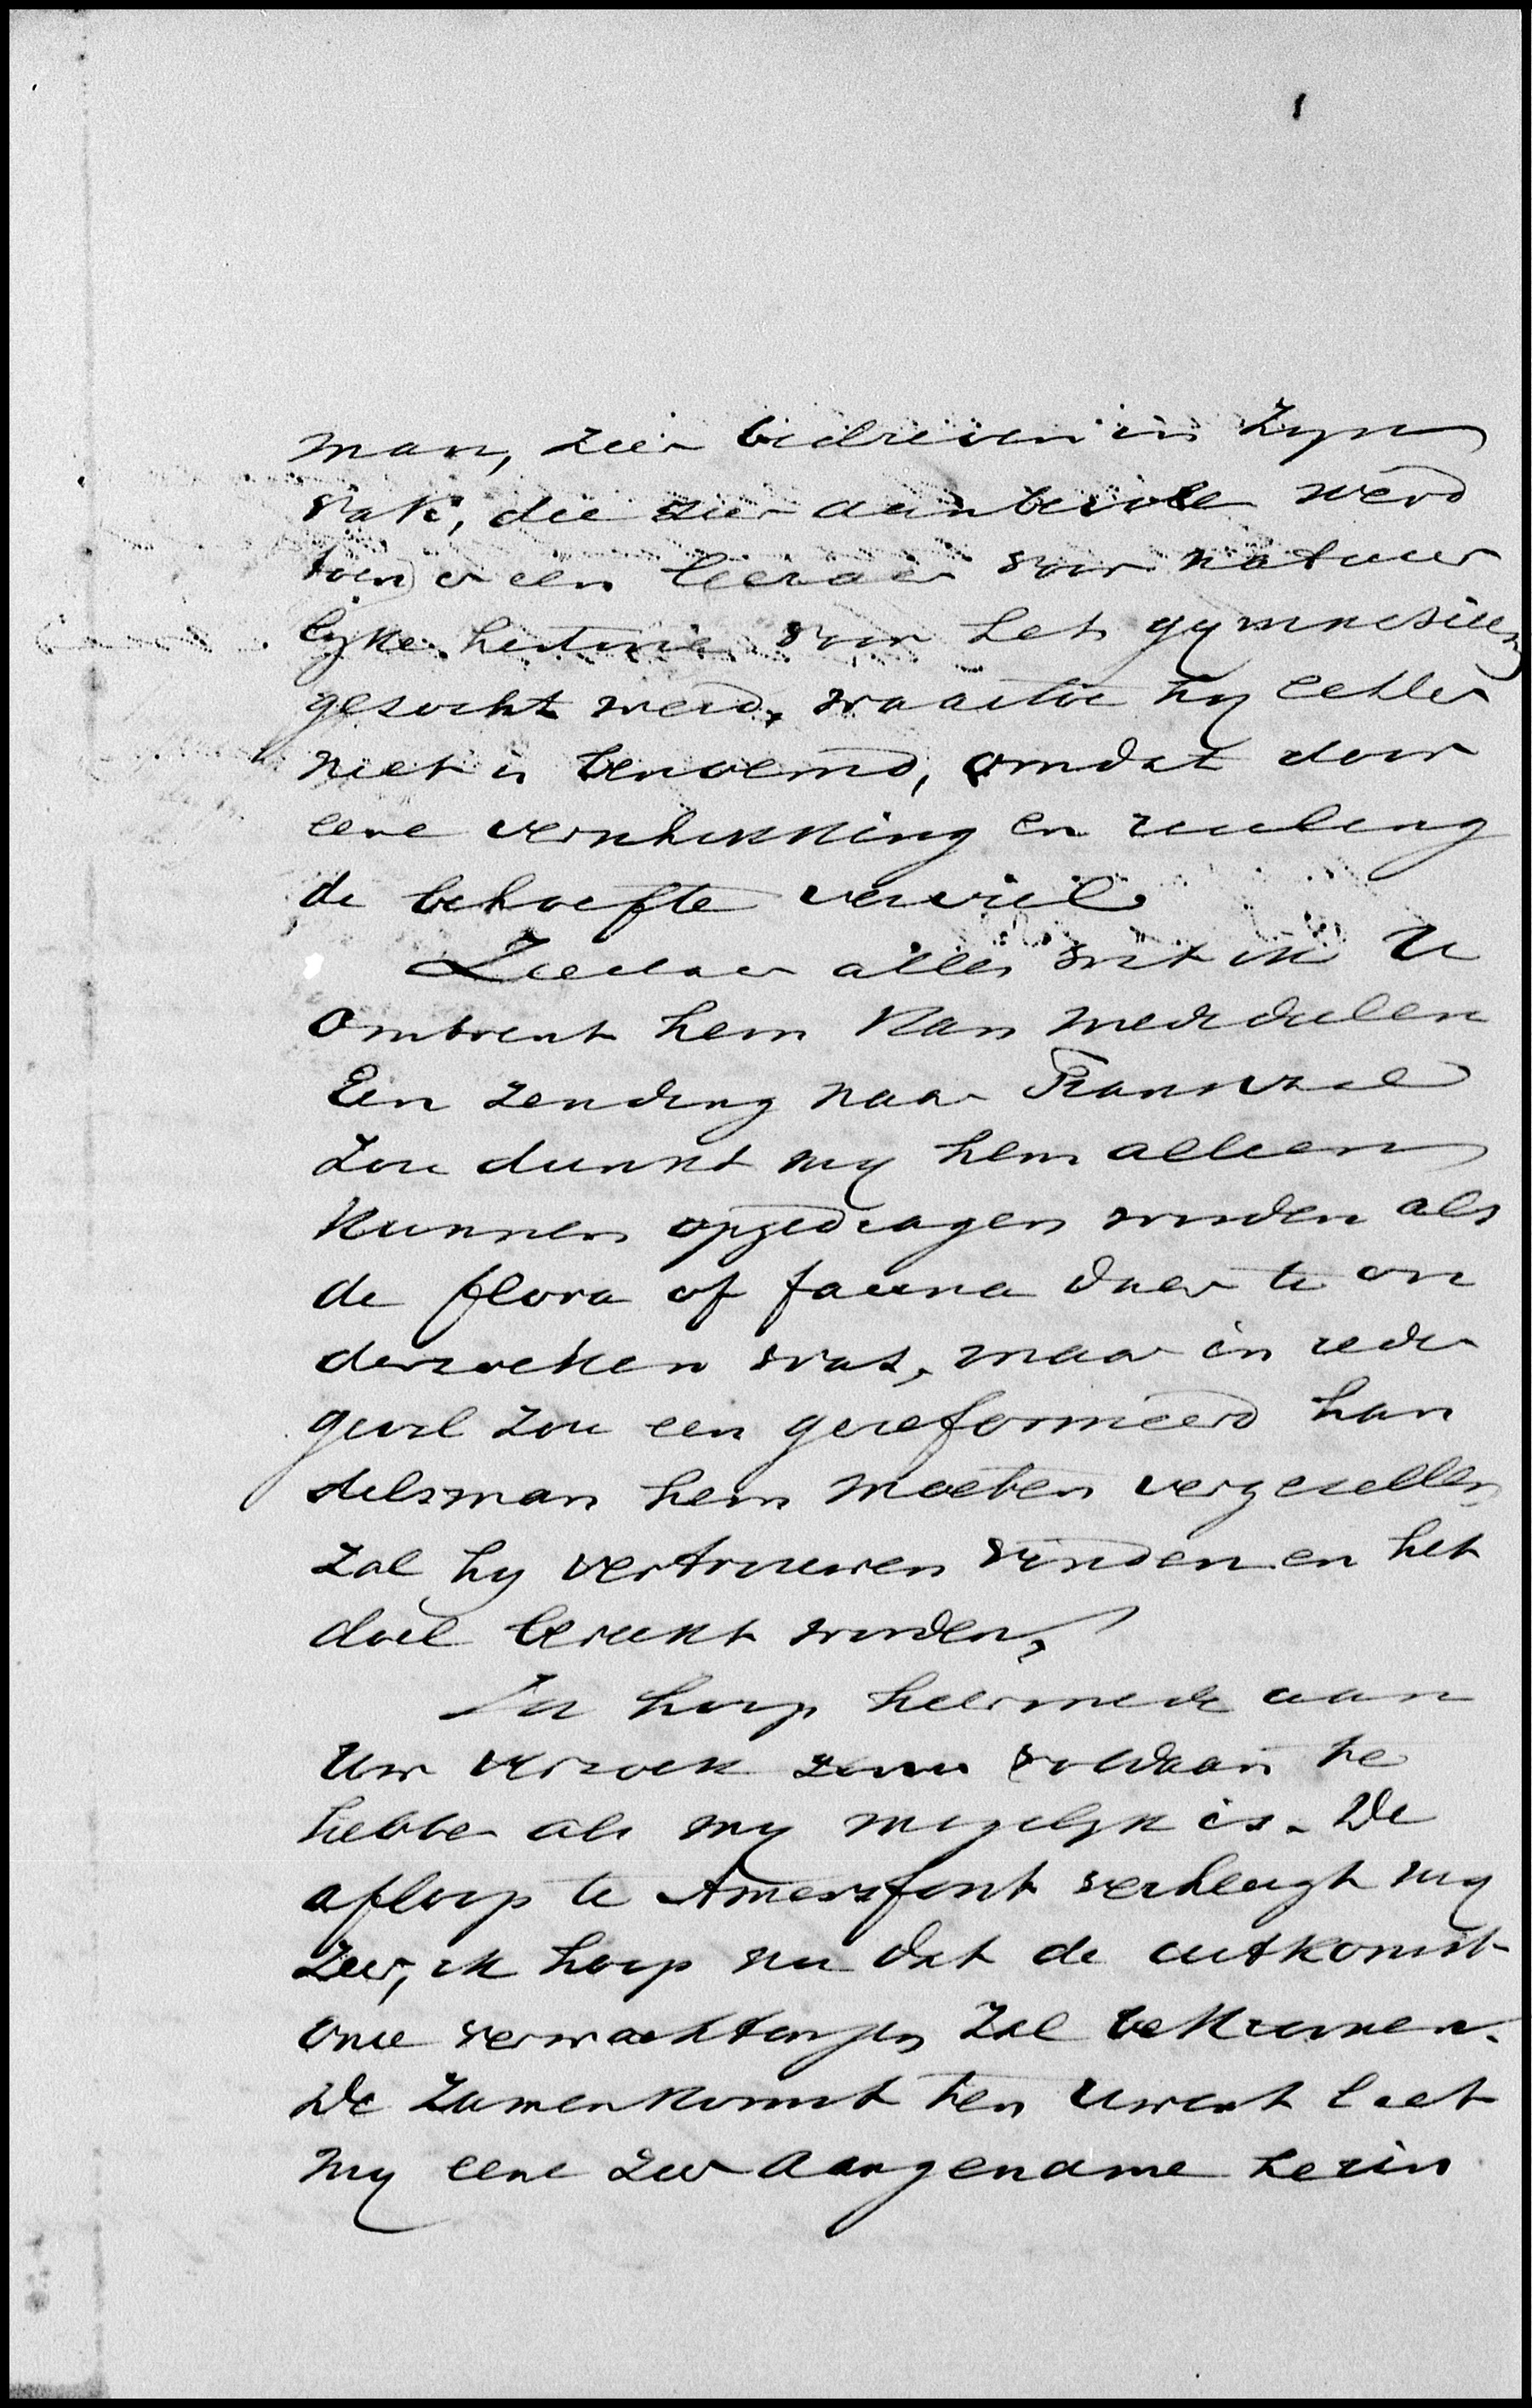 man, zeer bedreven in zyn
vak, die zeer aanbevole werd
toen er een leeraar voor natuur
lyke historie voor het gymnasium
gesocht werd, waartoe hy echter
niet is benoemd, omdat door
eene verschikking en ruiling
de behoefte verviel.
Ziedaar alles wat ik U
omtrent hem kan mededeelen
Een zending naar Transvaal
zou dunkt my hem alleen
kunnen opgedragen worden als
de flora of fauna daar te on
derzoeken was, maar in ieder
geval zou een gereformeerd han
delsman hem moeten vergesellen
zal hy vertrouwen vinden en het
doel bereikt worden.
Ik hoop hiermede aan
Uw verzoek voldaan te
hebben als my mogelyk is. De
afloop te Amersfoort verheugt my
zeer, ik hoop nu dat de uitkomst
onze verwachtingen zal bekroonen.
De zamenkomst ten Uwent laat
my eene zeer aangename herin